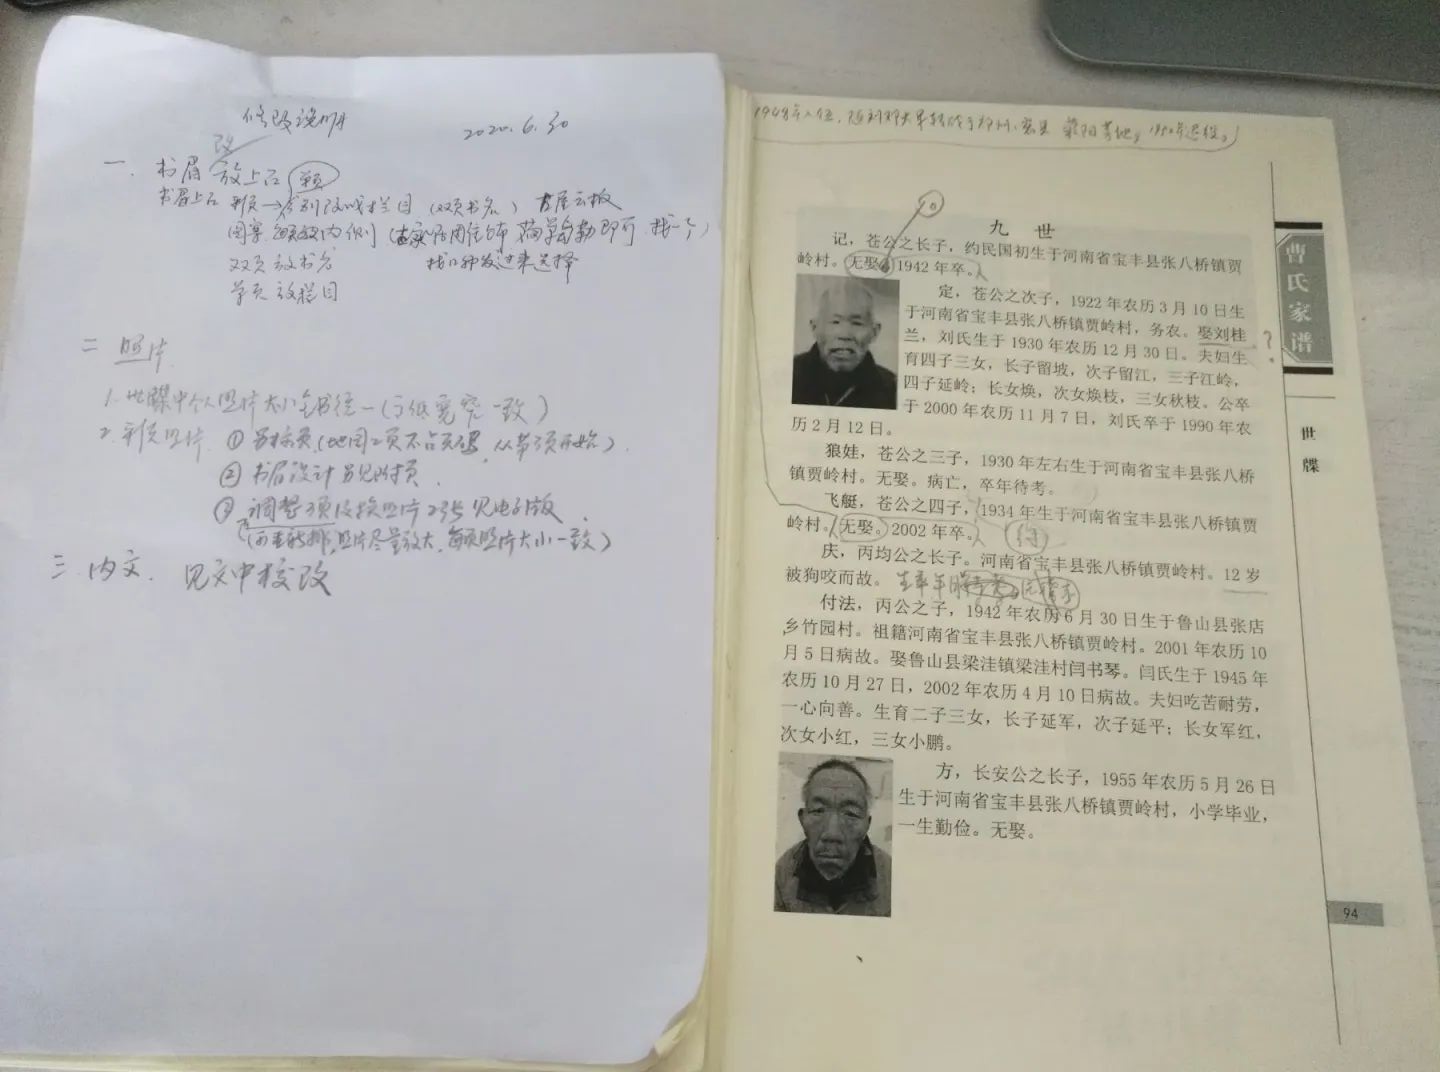 修改说明
2020.6.30
改
一. 书眉 放上口
书眉上口 彩页→分别改成栏目（双页书名）
图案
双页 放书名 找口 发过来选择
单页 放栏目
二 照片
1. 世牒中个人照片大小全书统一（与纸宽窄一致）
2. 彩页照片 ① 另标页（地图2页不占页码，从第3页开始）
② 书眉设计 另见附页.
③ 调整 页 换照片2张 见电子版
照片尽量放大，每页照片大小一致）
三. 内文. 见文中校改
1948年入伍，
九 世
记，苍公之长子，约民国初生于河南省宝丰县张八桥镇贾
岭村。无娶。1942 年卒。
定，苍公之次子，1922 年农历 3 月 10 日生
于河南省宝丰县张八桥镇贾岭村，务农。娶刘桂
兰，刘氏生于 1930 年农历 12 月 30 日。夫妇生
育四子三女，长子留坡，次子留江，三子江岭，
四子延岭；长女焕，次女焕枝，三女秋枝。公卒
于 2000 年农历 11 月 7 日，刘氏卒于 1990 年农
历 2 月 12 日。
?
狼娃，苍公之三子，1930 年左右生于河南省宝丰县张八桥
镇贾岭村。无娶。病亡，卒年待考。
飞艇，苍公之四子，1934 年生于河南省宝丰县张八桥镇贾
岭村。无娶。2002 年卒。
庆，丙均公之长子。河南省宝丰县张八桥镇贾岭村。12 岁
被狗咬而故。 生卒年
付法，丙公之子，1942 年农历 6 月 30 日生于鲁山县张店
乡竹园村。祖籍河南省宝丰县张八桥镇贾岭村。2001 年农历 10
月 5 日病故。娶鲁山县梁洼镇梁洼村闫书琴。闫氏生于 1945 年
农历 10 月 27 日，2002 年农历 4 月 10 日病故。夫妇吃苦耐劳，
一心向善。生育二子三女，长子延军，次子延平；长女军红，
次女小红，三女小鹏。
方，长安公之长子，1955 年农历 5 月 26 日
生于河南省宝丰县张八桥镇贾岭村，小学毕业，
一生勤俭。无娶。
曹氏家谱
世牒
94